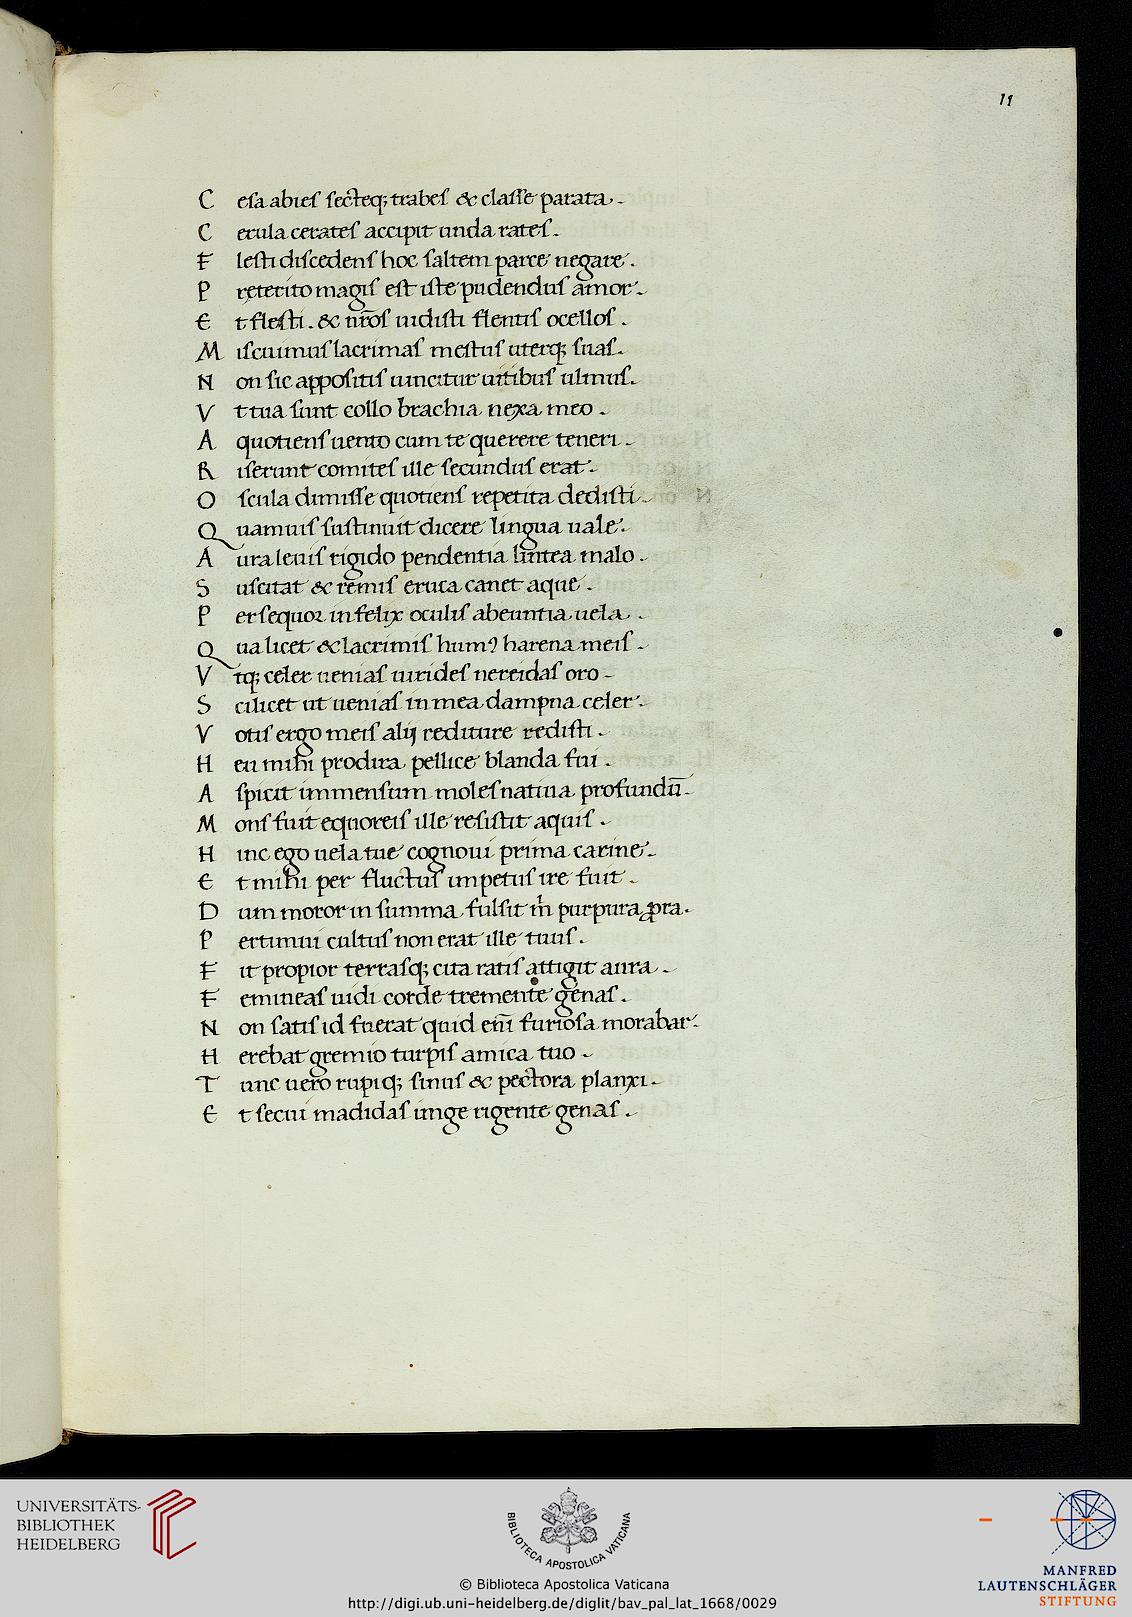 11
C esa abies secteq; trabes & classe parata.
C erula cerates accipit unda rates.
F lesti discedens hoc saltem parce negare.
P reterito magis est iste pudendus amor.
E t flesti. & nr̄os uidisti flentis ocellos.
M iscuimus lacrimas mestus uterq; suas.
N on sic appositis uincitur uitibus ulmus.
V t tua sunt collo brachia nexa meo.
A quotiens uento cum te querere teneri.
R iserunt comites ille secundus erat.
O scula dimisse quotiens repetita dedisti.
Q uamuis sustinuit dicere lingua uale.
A ura leuis rigido pendentia lintea malo.
S uscitat & remis eruta canet aque.
P ersequor infelix oculis abeuntia uela.
Q ua licet & lacrimis humꝰ harena meis.
V tq; celer uenias uirides nereidas oro.
S cilicet ut uenias in mea dampna celer.
V otis ergo meis alij rediture redisti.
H eu mihi prodira pellice blanda fui.
A spicit immensum moles natiua profundū.
M ons fuit equoreis ille resistit aquis.
H inc ego uela tue cognoui prima carine.
E t mihi per fluctus impetus ire fuit.
D um moror in summa fulsit m̄ purpura ꝓra.
P ertimui cultus non erat ille tuus.
F it propior terrasq; cita ratis attigit aura.
F emineas uidi corde tremente genas.
N on satis id fuerat quid enī furiosa morabar.
H erebat gremio turpis amica tuo.
T unc uero rupiq; sinus & pectora planxi.
E t secui madidas unge rigente genas.
UNIVERSITÄTS-
BIBLIOTHEK
HEIDELBERG
BIBLIOTECA APOSTOLICA VATICANA
© Biblioteca Apostolica Vaticana
http://digi.ub.uni-heidelberg.de/diglit/bav_pal_lat_1668/0029
MANFRED
LAUTENSCHLÄGER
STIFTUNG